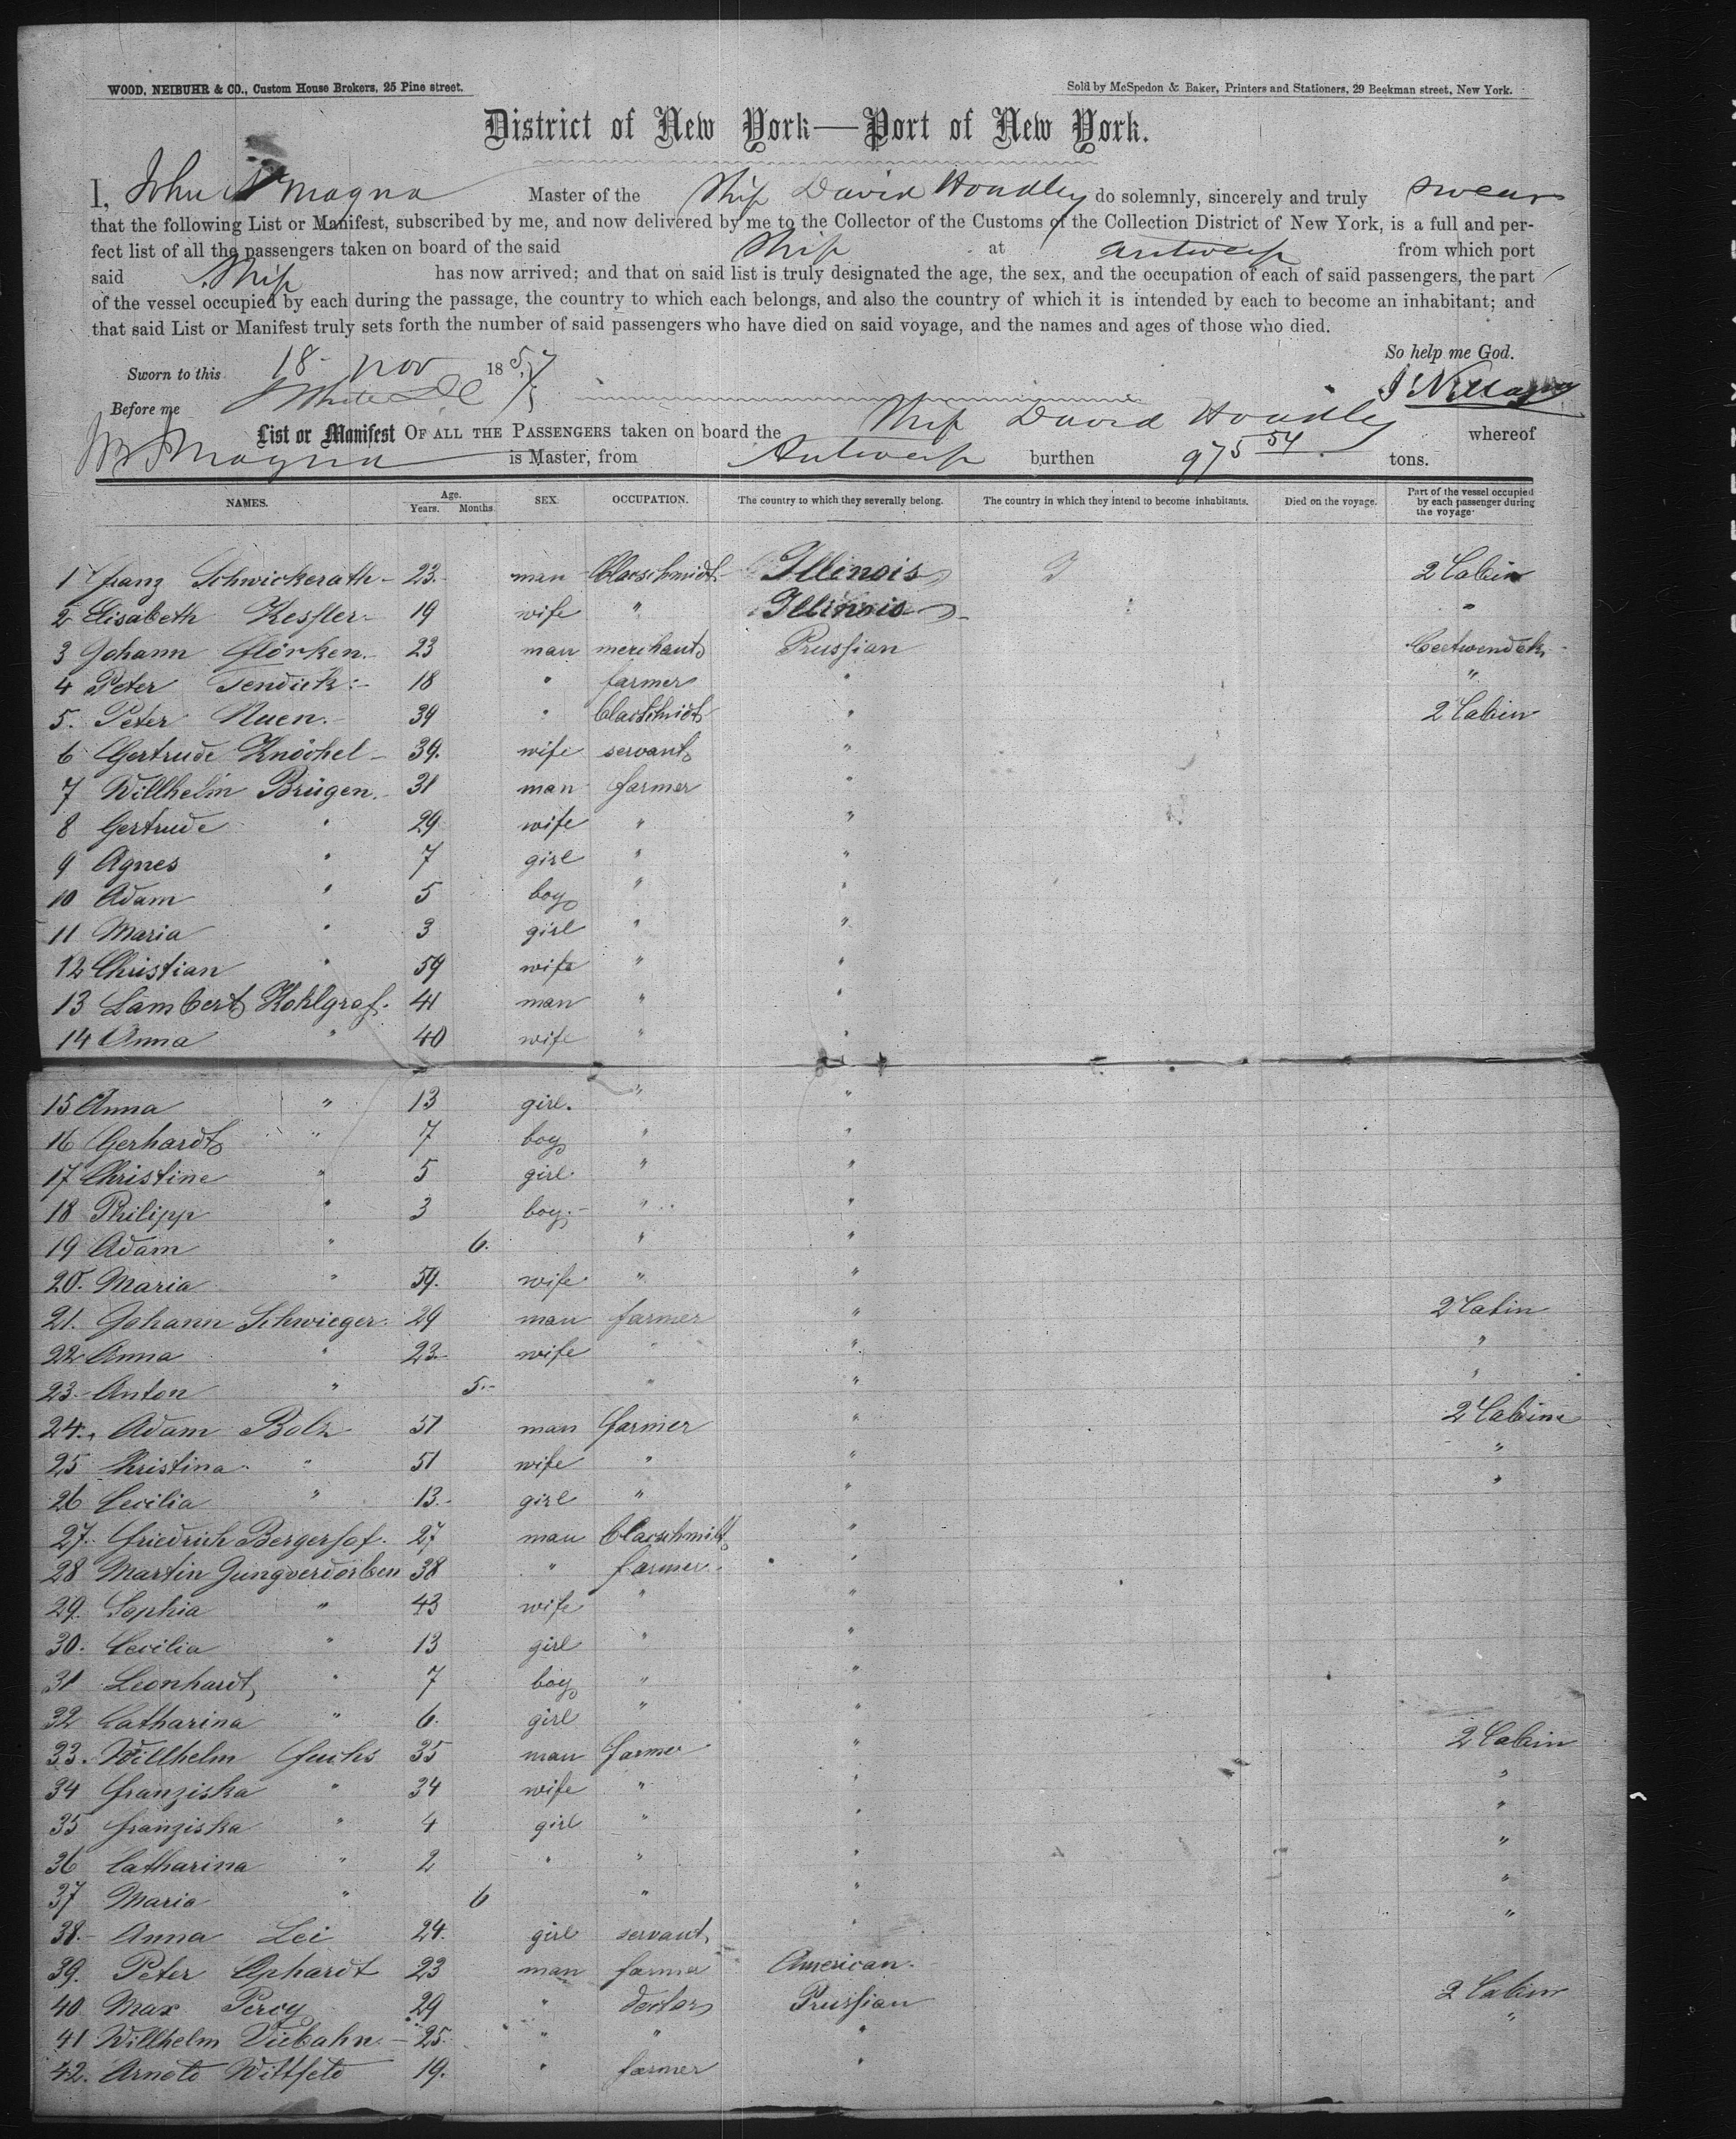 WOOD, NEIBUHR & CO., Custom House Brokers, 25 Pine street.
Sold by McSpedon & Baker, Printers and Stationers, 29 Beekman street, New York.
District of New York—Port of New York.
I, John N Magna Master of the Ship David Hoadley do solemnly, sincerely and truly swear
that the following List or Manifest, subscribed by me, and now delivered by me to the Collector of the Customs of the Collection District of New York, is a full and per-
fect list of all the passengers taken on board of the said Ship at Antwerp from which port
said Ship has now arrived; and that on said list is truly designated the age, the sex, and the occupation of each of said passengers, the part
of the vessel occupied by each during the passage, the country to which each belongs, and also the country of which it is intended by each to become an inhabitant; and
that said List or Manifest truly sets forth the number of said passengers who have died on said voyage, and the names and ages of those who died.
So help me God.
Sworn to this 18 Nov 1857
J N Magna
Before me
List or Manifest OF ALL THE PASSENGERS taken on board the Ship David Hoadley whereof
Magna is Master, from Antwerp burthen 975 54 tons.
NAMES. Age. Years. Months. SEX. OCCUPATION. The country to which they severally belong. The country in which they intend to become inhabitants. Died on the voyage. Part of the vessel occupied by each passenger during the voyage.
1 Franz Schwickerath 23 man blacschmidt Illinois 2 Cabin
2 Elisabeth Kessler 19 wife " Illinois "
3 Johann Flörken 23 man merchant Prussian
4 Peter Tendick 18 " farmer " "
5. Peter Nuen 39 " blacschmidt " 2 Cabin
6 Gertrude Knöchel 39. wife servant "
7 Willhelm Brügen 31 man farmer "
8 Gertrude " 29 wife " "
9 Agnes " 7 girl " "
10 Adam " 5 boy " "
11 Maria " 3 girl " "
12 Christian " 59 wife " "
13 Lambert Kohlgraf 41 man " "
14 Anna " 40 wife " "
15 Anna " 13 girl. " "
16 Gerhardt " 7 boy " "
17 Christine " 5 girl " "
18 Philipp " 3 boy. " "
19 Adam " 6. " "
20. Maria " 59. wife " "
21. Johann Schwieger 29 man farmer " 2 Cabin
22 Anna " 23 wife " " "
23 Anton " 5. " " "
24. Adam Bolz 51 man farmer " 2 Cabin
25 Christina " 51 wife " " "
26 Cecilia " 13 girl " " "
27. Friedrich Bergerhof 27 man blacschmidt "
28 Martin Jungverdorben 38 " farmer "
29. Sophia " 43 wife " "
30. Cecilia " 13 girl " "
31 Leonhardt " 7 boy " "
32 Catharina " 6. girl " "
33. Willhelm Fuchs 35 man farmer " 2 Cabin
34 Franziska " 34 wife " " "
35 Franziska " 4 girl " " "
36 Catharina " 2 " " " "
37 Maria " 6 " " "
38. Anna Lei 24. girl servant " "
39. Peter Aphardt 23 man farmer American
40 Max Percy 29 " doctor Prussian 2 Cabin
41 Willhelm Viebahn 25 " " " "
42. Arnold Wittfeld 19. " farmer "